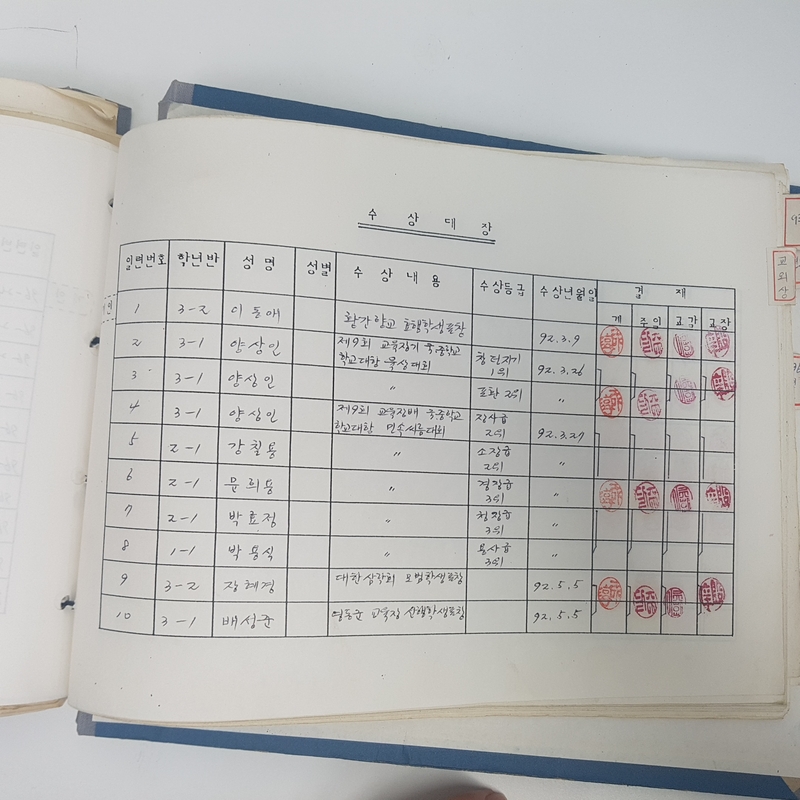 수 상 대 장
일련번호 학년반 성명 성별 수상내용 수상등급 수상년월일 결재
계 주임 교감 교장
1 3-2 이동애 황간향교 효행학생표창 92.3.9
2 3-1 양상인 제9회 교육장기 국,중학교
학교대항 육상대회 창던지기
1위 92.3.26
3 3-1 양상인 〃 포환 2위 〃
4 3-1 양상인 제9회 교육장배 국중학교
학교대항 민속씨름대회 장사급
2위 92.3.27
5 2-1 강칠용 〃 소장급
2위 〃
6 2-1 문희동 〃 경장급
3위 〃
7 2-1 박효정 〃 청장급
3위 〃
8 1-1 박용식 〃 용사급
3위 〃
9 3-2 장혜경 대한삼락회 모범학생표창 92.5.5
10 3-1 배성균 영동군 교육장 선행학생표창 92.5.5
교외상